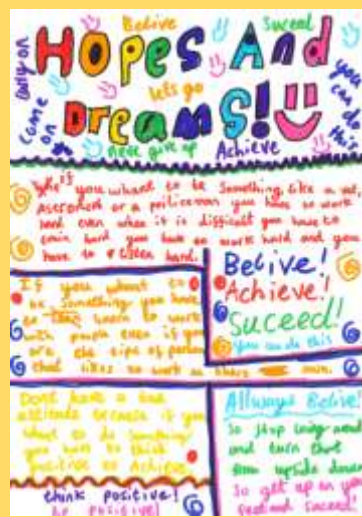 Belive
Suceed
HOPES AND
DREAMS!
Come on
lets go
you can do this
never give up
Achieve
if you whant to be Something like a vet,
Astronort or a policeman you have to work
hard even when it is difficult you have to
train hard you have to work hard and you
have to listen hard.
If you whant to
be Something you have
to learn to work
with people even if you
are the tipe of person
that likes to work on there own.
Belive!
Achieve!
Suceed!
You can do this
Dont have a bad
attitude because if you
whant to do something
you have to think
positive to Achieve.
think positive!
be positive!
Allways Belive!
So stop being
and turn that
frown upside down
So get up on your
feet and suceed.